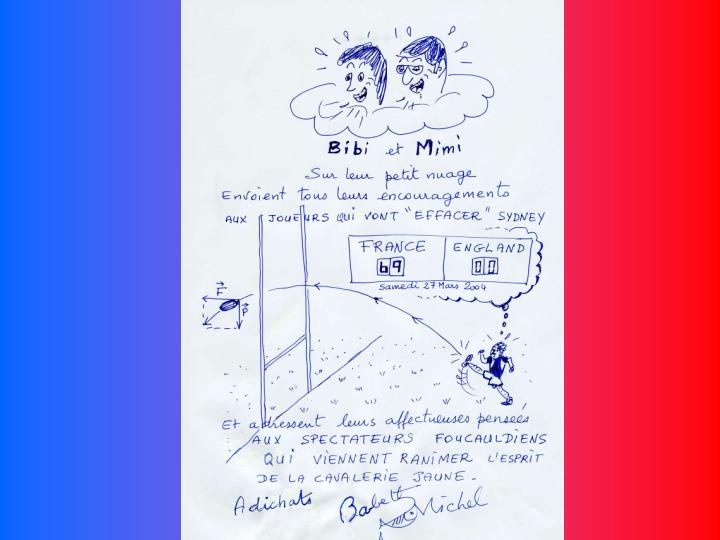 Bibi et Mimi
Sur leur petit nuage
Envoient tous leurs encouragements
AUX JOUEURS QUI VONT "EFFACER" SYDNEY
FRANCE ENGLAND
69 00
Samedi 27 Mars 2004
F
P
Et adressent leurs affectueuses pensées
AUX SPECTATEURS FOUCAULDIENS
QUI VIENNENT RANIMER L'ESPRIT
DE LA CAVALERIE JAUNE.
Adichats Babeth Michel